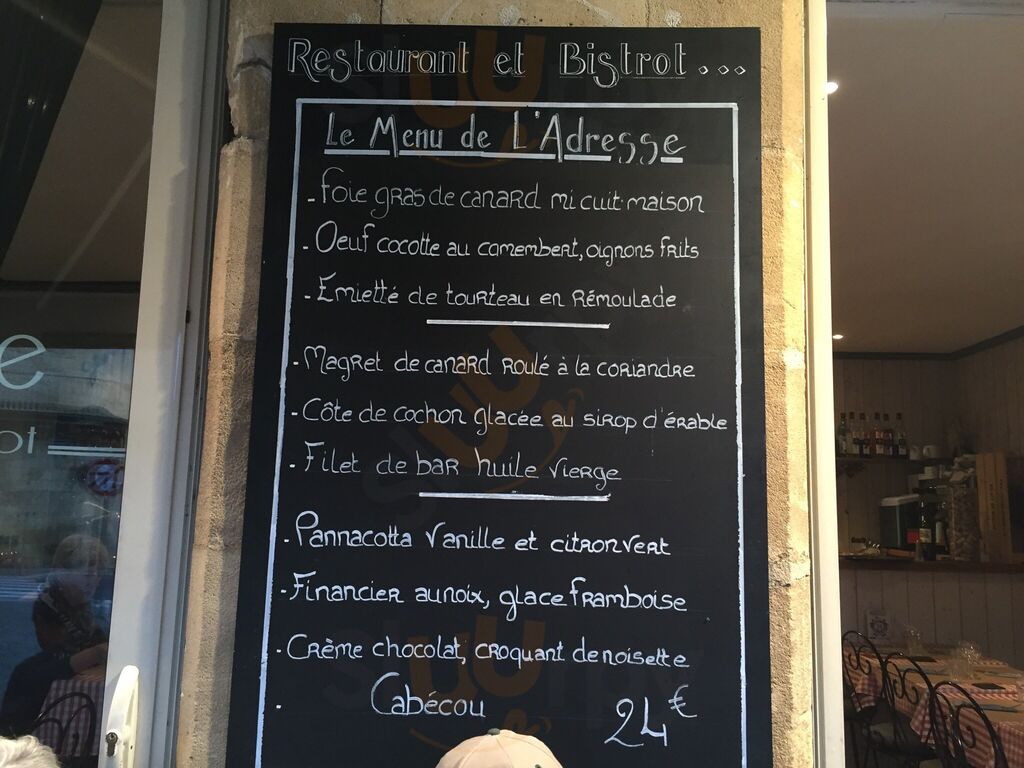 Restaurant et Bistrot...
Le Menu de L'Adresse
- Foie gras de canard mi cuit maison
- Oeuf cocotte au camembert, oignons frits
- Émietté de tourteau en Rémoulade
- Magret de canard roulé à la coriandre
- Côte de cochon glacée au sirop d'érable
- Filet de bar huile vierge
- Pannacotta Vanille et citron vert
- Financier aunoix, glace framboise
- Crème chocolat, croquant de noisette
. Cabécou 24€